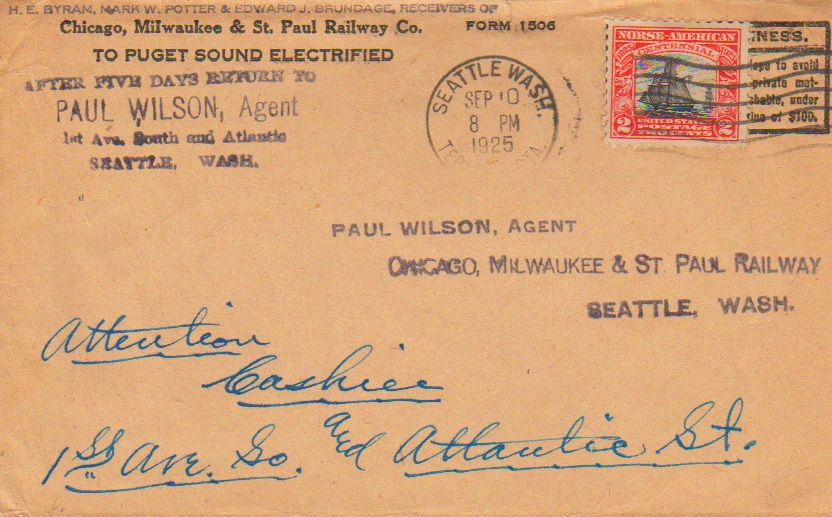 H. E. BYRAM, MARK W. POTTER & EDWARD J. BRUNDAGE, RECEIVERS OF
Chicago, Milwaukee & St. Paul Railway Co. FORM 1506
TO PUGET SOUND ELECTRIFIED
AFTER FIVE DAYS RETURN TO
PAUL WILSON, Agent
1st Ave. South and Atlantic
SEATTLE, WASH.
SEATTLE WASH.
SEP 10
8 PM
1925
NORSE-AMERICAN
CENTENNIAL
2 UNITED STATES 2
POSTAGE
TWO CENTS
INESS.
to avoid
private mat-
under
of $300.
PAUL WILSON, AGENT
CHICAGO, MILWAUKEE & ST. PAUL RAILWAY
SEATTLE, WASH.
Attention
Cashier
1st Ave. So. and Atlantic St.